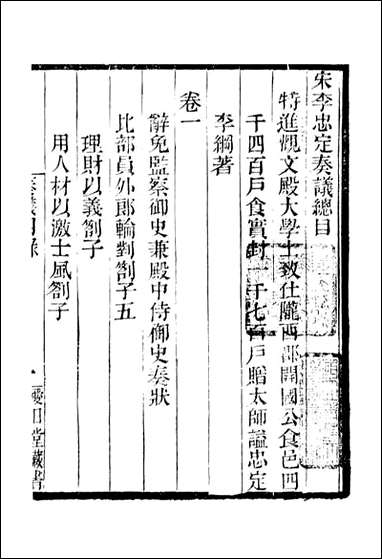 宋李忠定奏議總目
特進觀文殿大學士致仕隴西郡開國公食邑四
千四百戶食實封一千七百戶贈太師諡忠定
李綱著
卷一
辭免監察御史兼殿中侍御史奏狀
比部員外郎輪對劄子五
理財以義劄子
用人材以激士風劄子
奏議目錄
愛日堂藏書